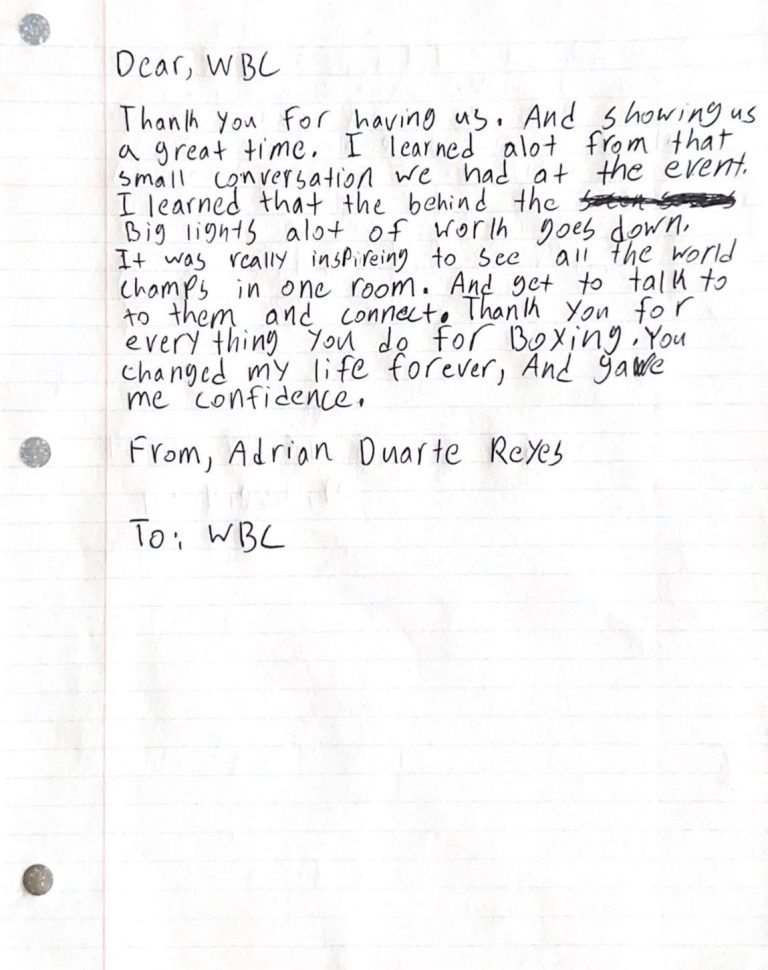 Dear, WBC
Thank you for having us. And showing us
a great time. I learned alot from that
small conversation we had at the event.
I learned that the behind the
Big lights alot of work goes down.
It was really inspireing to see all the world
champs in one room. And get to talk to
to them and connect. Thank you for
every thing you do for Boxing. You
changed my life forever, And gave
me confidence.
From, Adrian Duarte Reyes
To: WBC